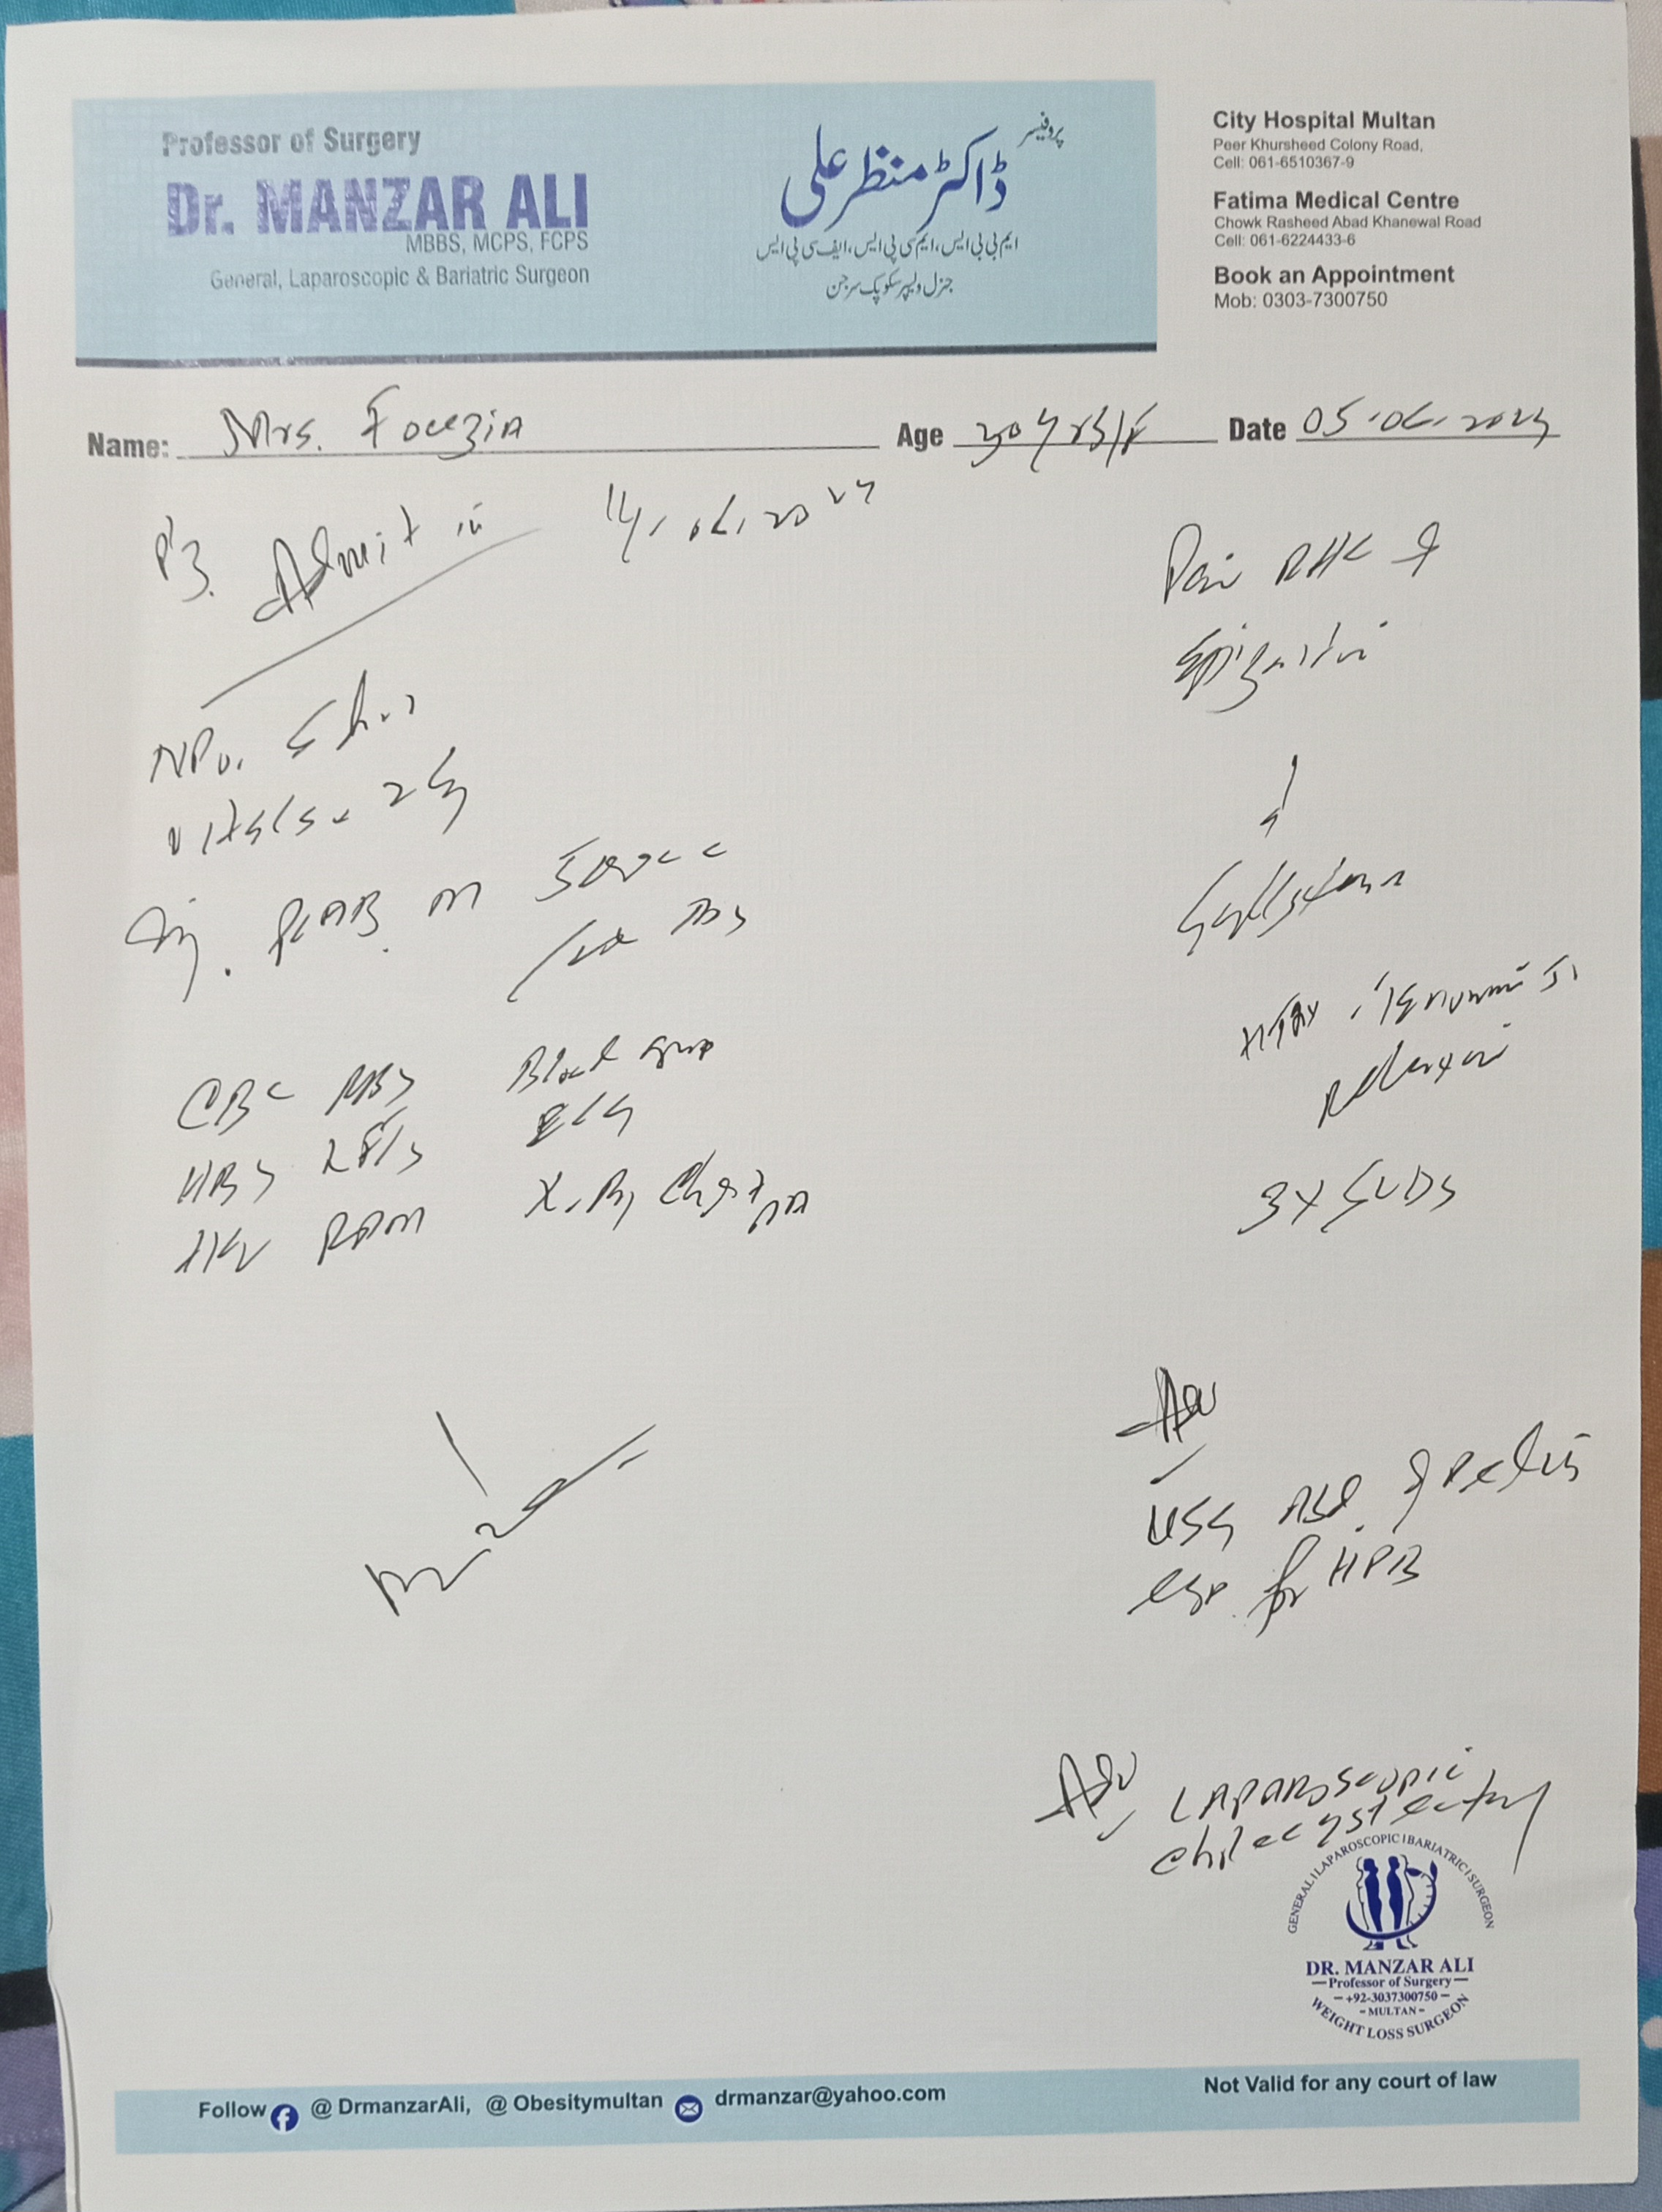 Professor of Surgery
Dr. MANZAR ALI
MBBS, MCPS, FCPS
General, Laparoscopic & Bariatric Surgeon
پروفیسر
ڈاکٹر منظر علی
ایم بی بی ایس، ایم سی پی ایس، ایف سی پی ایس
جنرل و لیپرسکوپک سرجن
City Hospital Multan
Peer Khursheed Colony Road,
Cell: 061-6510367-9
Fatima Medical Centre
Chowk Rasheed Abad Khanewal Road
Cell: 061-6224433-6
Book an Appointment
Mob: 0303-7300750
Name: Mrs. Fouzia Age 30 yrs/F Date
Admit in
NPO.
Vitals
Inj.
CBC RBS Blood group
HBS LFTs ECG
RPM X-Ray Chest PA
Pain RHC &
Epigastrium
Gallstones
3x SVDS
Adv
USG Abd. & Pelvis
esp. for HPB
Adv LAPAROSCOPIC
cholecystectomy
GENERAL | LAPAROSCOPIC | BARIATRIC | SURGEON
DR. MANZAR ALI
Professor of Surgery
+92-3037300750
- MULTAN -
WEIGHT LOSS SURGEON
Follow @ DrmanzarAli, @ Obesitymultan drmanzar@yahoo.com
Not Valid for any court of law